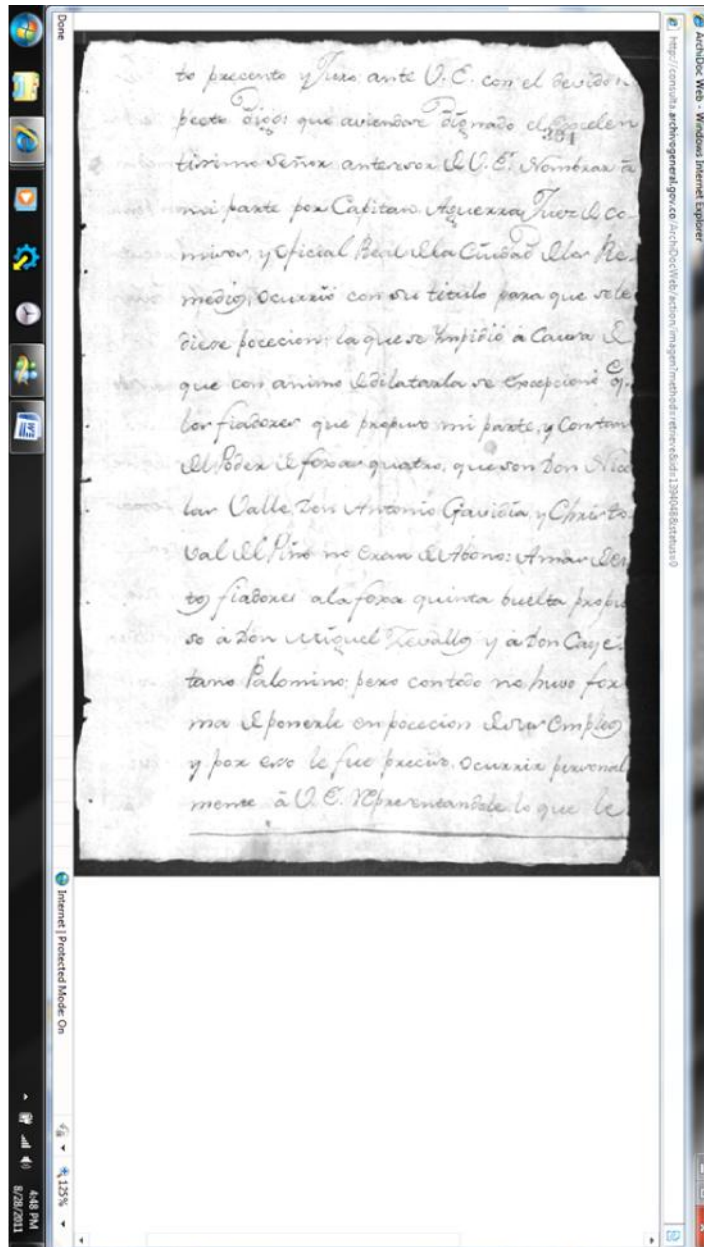 ArchiDoc Web - Windows Internet Explorer
http://consulta.archivogeneral.gov.co/ArchiDocWeb/action/imagen?method=retrieve&id=1394048&status=0
to precento y Juro: ante V. E. con el devido
pecto Digo: que aviendose Dignado el Excelen
351
tissimo Señor antecesor de V. E. Nombrar â
mi parte por Capitan Aguerra, Juez de co-
misos, y Oficial Real de la Ciudad de los Re-
medios, ocurrió con su titulo para que se le
diese pocecion: la que se Ympidió â Causa de
que con animo de dilatarla se Excepcionó q.
los fiadores que propuso mi parte, y Constan
del Poder de foxas quatro, que son Don Nico
las Valle, Don Antonio Gavidia, y Christo
val del Pino no eran de Abono: Amas de es
tos fiadores a la foxa quinta buelta propu
so â Don Miguel Zevallos y â Don Caye-
tano Palomino; pero con todo no huvo for
ma de ponerle en pocecion de sus Empleos
y por esso le fue preciso, ocurrir personal
mente â V. E. Representandole lo que le
Done
Internet | Protected Mode: On
125%
4:48 PM
8/28/2011